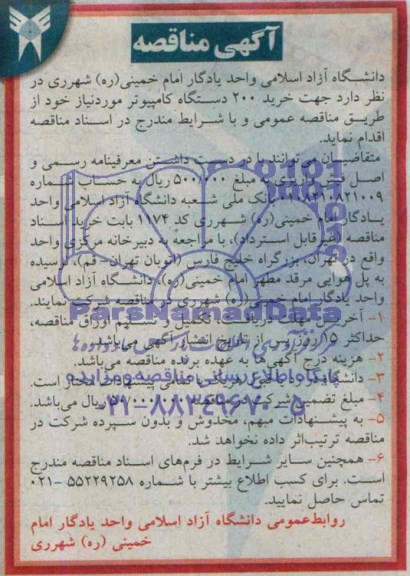 آگهی مناقصه
دانشگاه آزاد اسلامی واحد یادگار امام خمینی(ره) شهرری در
نظر دارد جهت خرید ۲۰۰ دستگاه کامپیوتر موردنیاز خود از
طریق مناقصه عمومی و با شرایط مندرج در اسناد مناقصه
اقدام نماید.
متقاضیان می‌توانند با در دست داشتن معرفینامه رسمی و
اصل مبلغ ریال به حساب شماره
بانک ملی شعبه دانشگاه آزاد اسلامی واحد
یادگار امام خمینی(ره) شهرری کد ۱۱۷۴ بابت خرید اسناد
مناقصه (غیرقابل استرداد)، با مراجعه به دبیرخانه مرکزی واحد
واقع در تهران، بزرگراه خلیج فارس (اتوبان تهران- قم)، نرسیده
به پل هوایی مرقد مطهر امام خمینی(ره)، دانشگاه آزاد اسلامی
واحد یادگار امام خمینی(ره) شهرری در مناقصه شرکت نمایند.
ParsNamadData
۱- آخرین تکمیل و تسلیم اوراق مناقصه،
حداکثر ۱۵ روز پس از تاریخ انتشار آگهی می‌باشد.
۲- هزینه درج آگهی‌ها به عهده برنده مناقصه می‌باشد.
پایگاه اطلاع رسانی مناقصه و مزایده
۳- دانشگاه در رد پیشنهادها مختار است.
۰۲۱-۸۸۳۴۹۶۷۰-۵
۴- مبلغ تضمین شرکت در مناقصه ریال می‌باشد.
۵- به پیشنهادات مبهم، مخدوش و بدون سپرده شرکت در
مناقصه ترتیب‌اثر داده نخواهد شد.
۶- همچنین سایر شرایط در فرم‌های اسناد مناقصه مندرج
است. برای کسب اطلاع بیشتر با شماره ۵۵۲۲۹۲۵۸ -۰۲۱
تماس حاصل نمایید.
روابط‌عمومی دانشگاه آزاد اسلامی واحد یادگار امام
خمینی (ره) شهرری